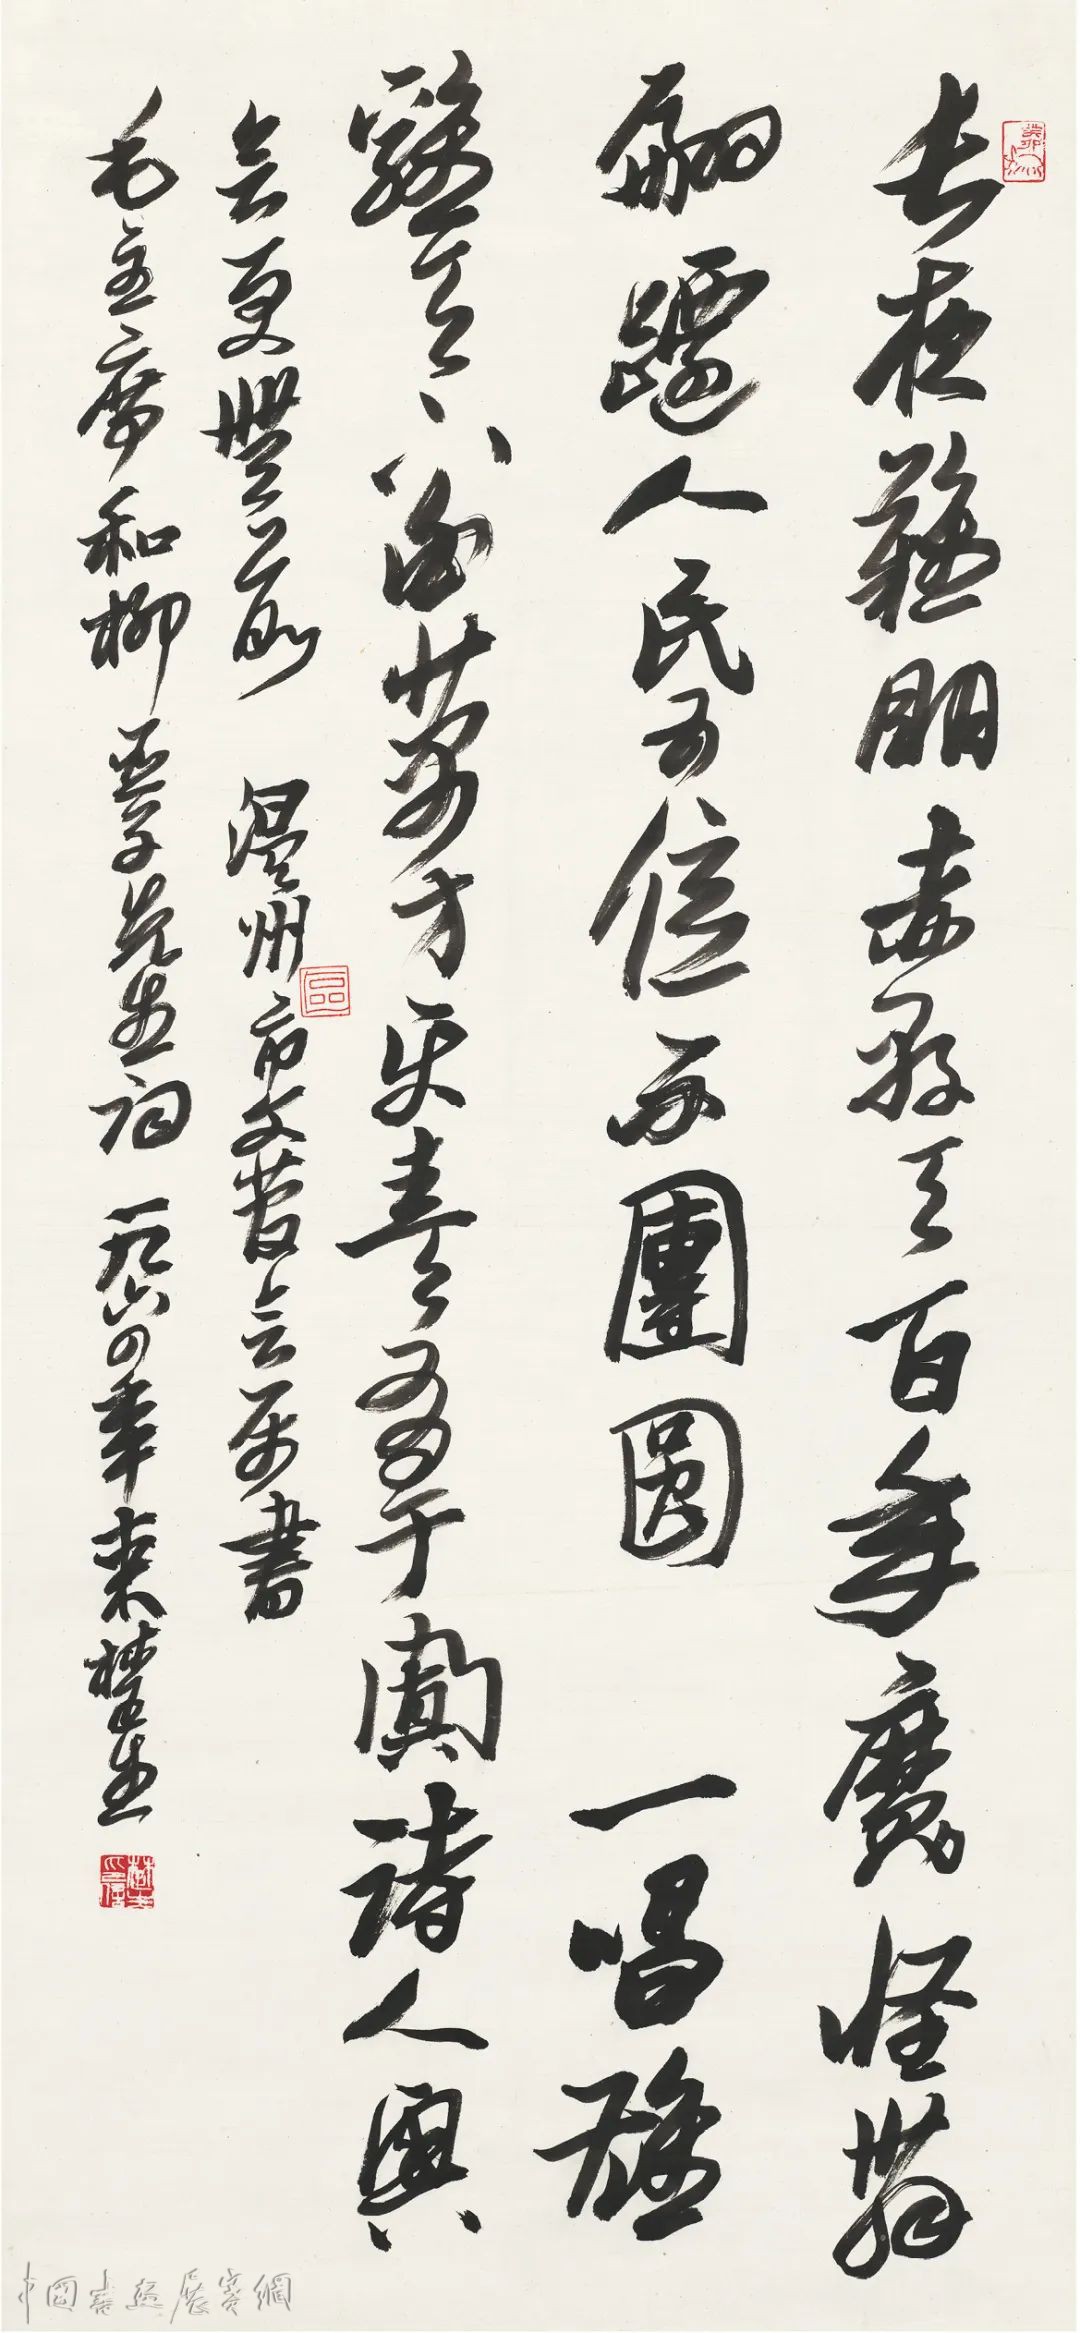 長夜難明赤縣天百年魔怪舞
翩躚人民五億不團圓 一唱雄
雞天下白萬方樂奏有于闐詩人興
会更無前 温州市文管会属書
毛主席和柳亞子先生詞 一九六四年来楚生
中國書画展賽網